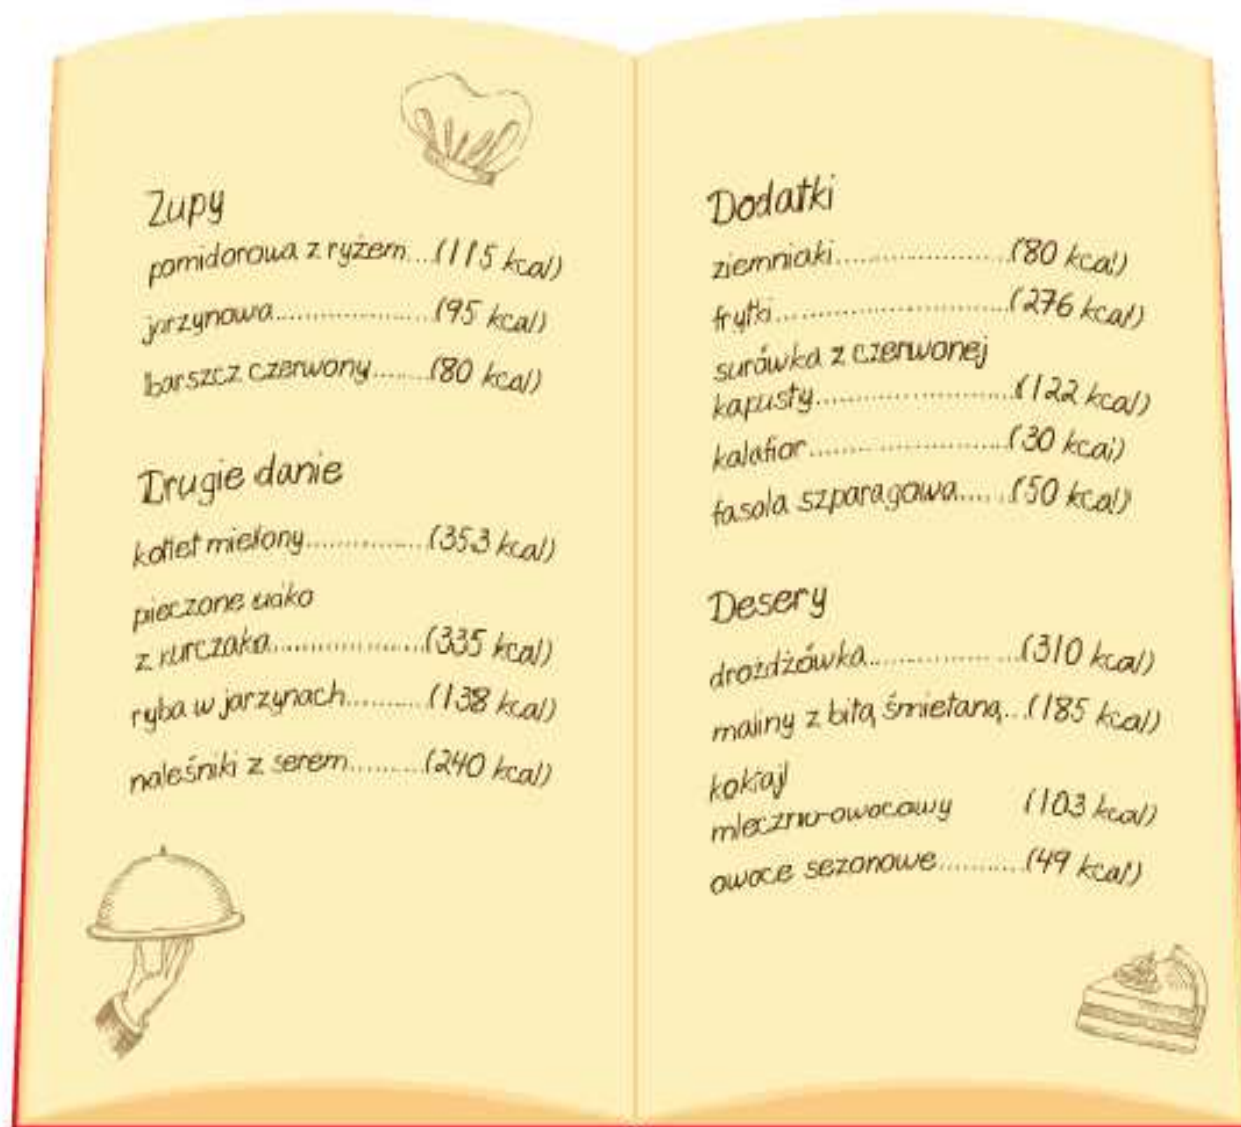 Zupy
pomidorowa z ryżem...(115 kcal)
jarzynowa..................(95 kcal)
barszcz czerwony.......(80 kcal)
Drugie danie
kotlet mielony..............(353 kcal)
pieczone udko
z kurczaka..................(335 kcal)
ryba w jarzynach.........(138 kcal)
naleśniki z serem.........(240 kcal)
Dodatki
ziemniaki.....................(80 kcal)
frytki............................(276 kcal)
surówka z czerwonej
kapusty.......................(122 kcal)
kalafior.......................(30 kcal)
fasola szparagowa......(50 kcal)
Desery
drożdżówka.................(310 kcal)
maliny z bitą śmietaną...(185 kcal)
koktajl
mleczno-owocowy (103 kcal)
owoce sezonowe..........(49 kcal)